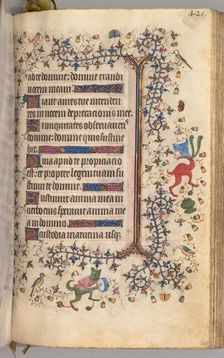 ad te domine: domine exaudi
vocem meam.
Fiant aures tue intenden
tes in vocem deprecationis mee.
Si iniquitates observaveris
domine: domine quis sustine
bit.
Quia apud te propiciacio
est: et propter legem tuam sus
tinui te domine.
Sustinuit anima mea in
verbo eius: speravit anima me
a in domino.
A custodia matutina usq;